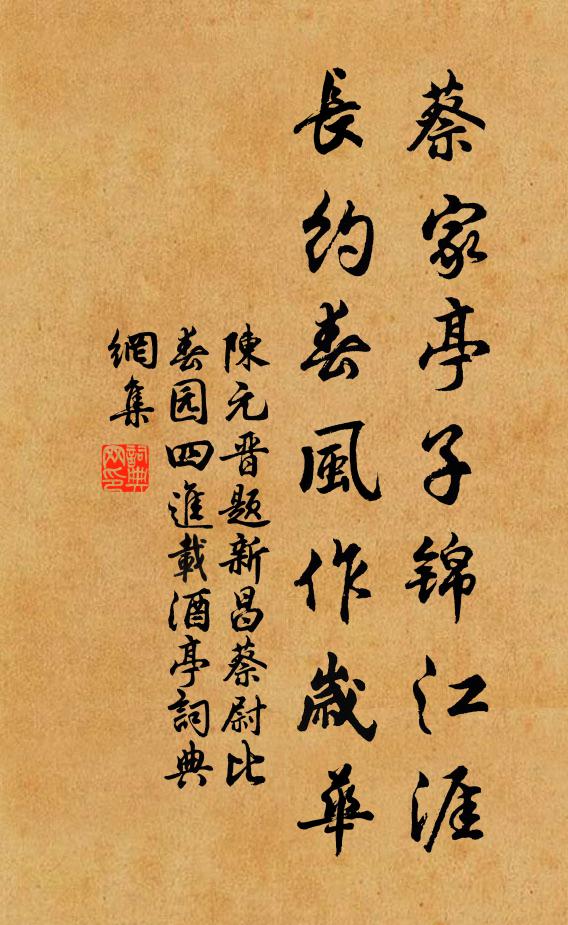 蔡家亭子锦江涯
長約春風作歲華
陳元晋題新昌蔡尉比
春园四進載酒亭詞典
網集
詞典網印